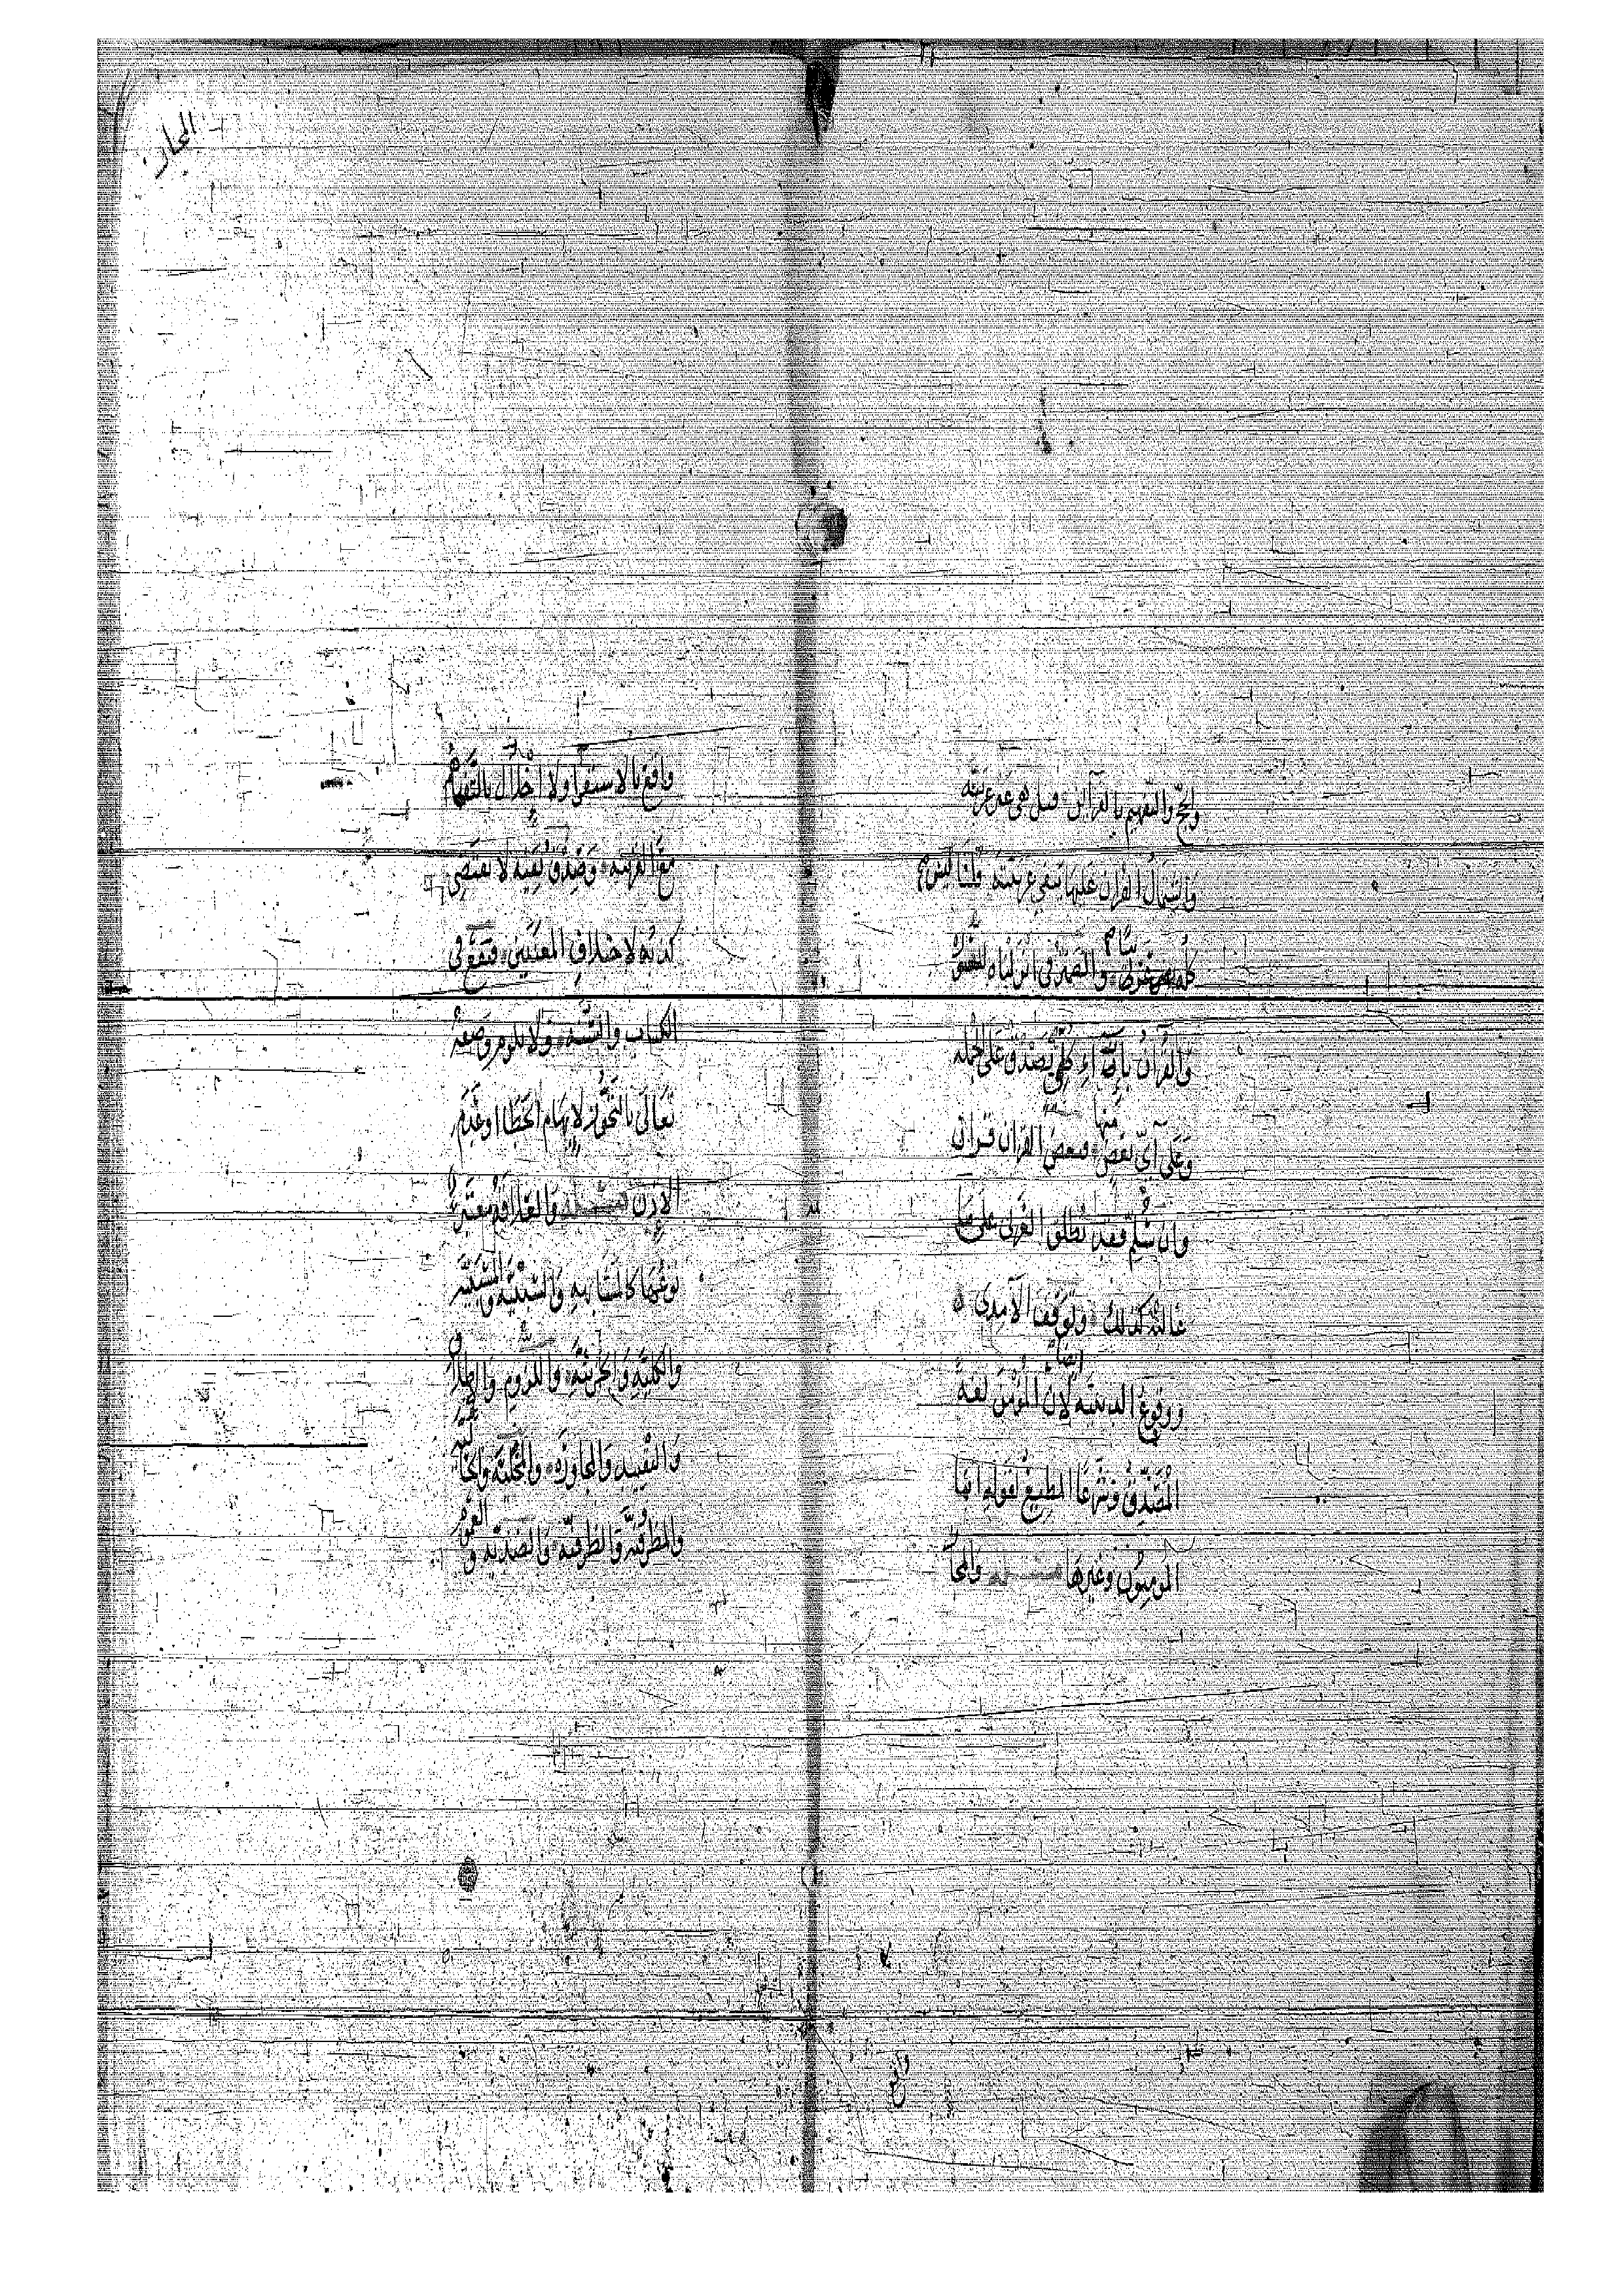 والحج والتفهيم بالقرائن قيل هي غير عربية
واشتمال القرآن عليها ينفي عربيته وانا ليس
كله والضمير في انزلناه للسورة
والقرآن بازاء كلي يصدق على الجملة
وعلى أي بعض منها فبعض القرآن قرآن
وان سلم فقد يطلق العربي على ما
غالبه كذلك وتوقف الآمدي ه
ووقوع الدينية ايضا لان المؤمن لغة
المصدق وشرعا المطيع لقوله انما
المومنون وغيرها والمجاز
واقع
المجاز
واقع بالاستقرا ولا اخلال بالتفاهم
مع القرينة وصدق نفيه لا يقتضي
كذبه لاختلاف المعنيين فيقع في
الكتاب والسنة ولا يلزم وصفه
تعالى بالتجوز لايهام الخطا او عدم
الاذن والعلاقة معتبر
نوعها كالمشابهة والسببية والمسببية
والكلية والجزئية واللزوم والاطلاق
والتقييد والمجاورة والمحلية والحالية
والمظروفية والظرفية والضدية والعموم